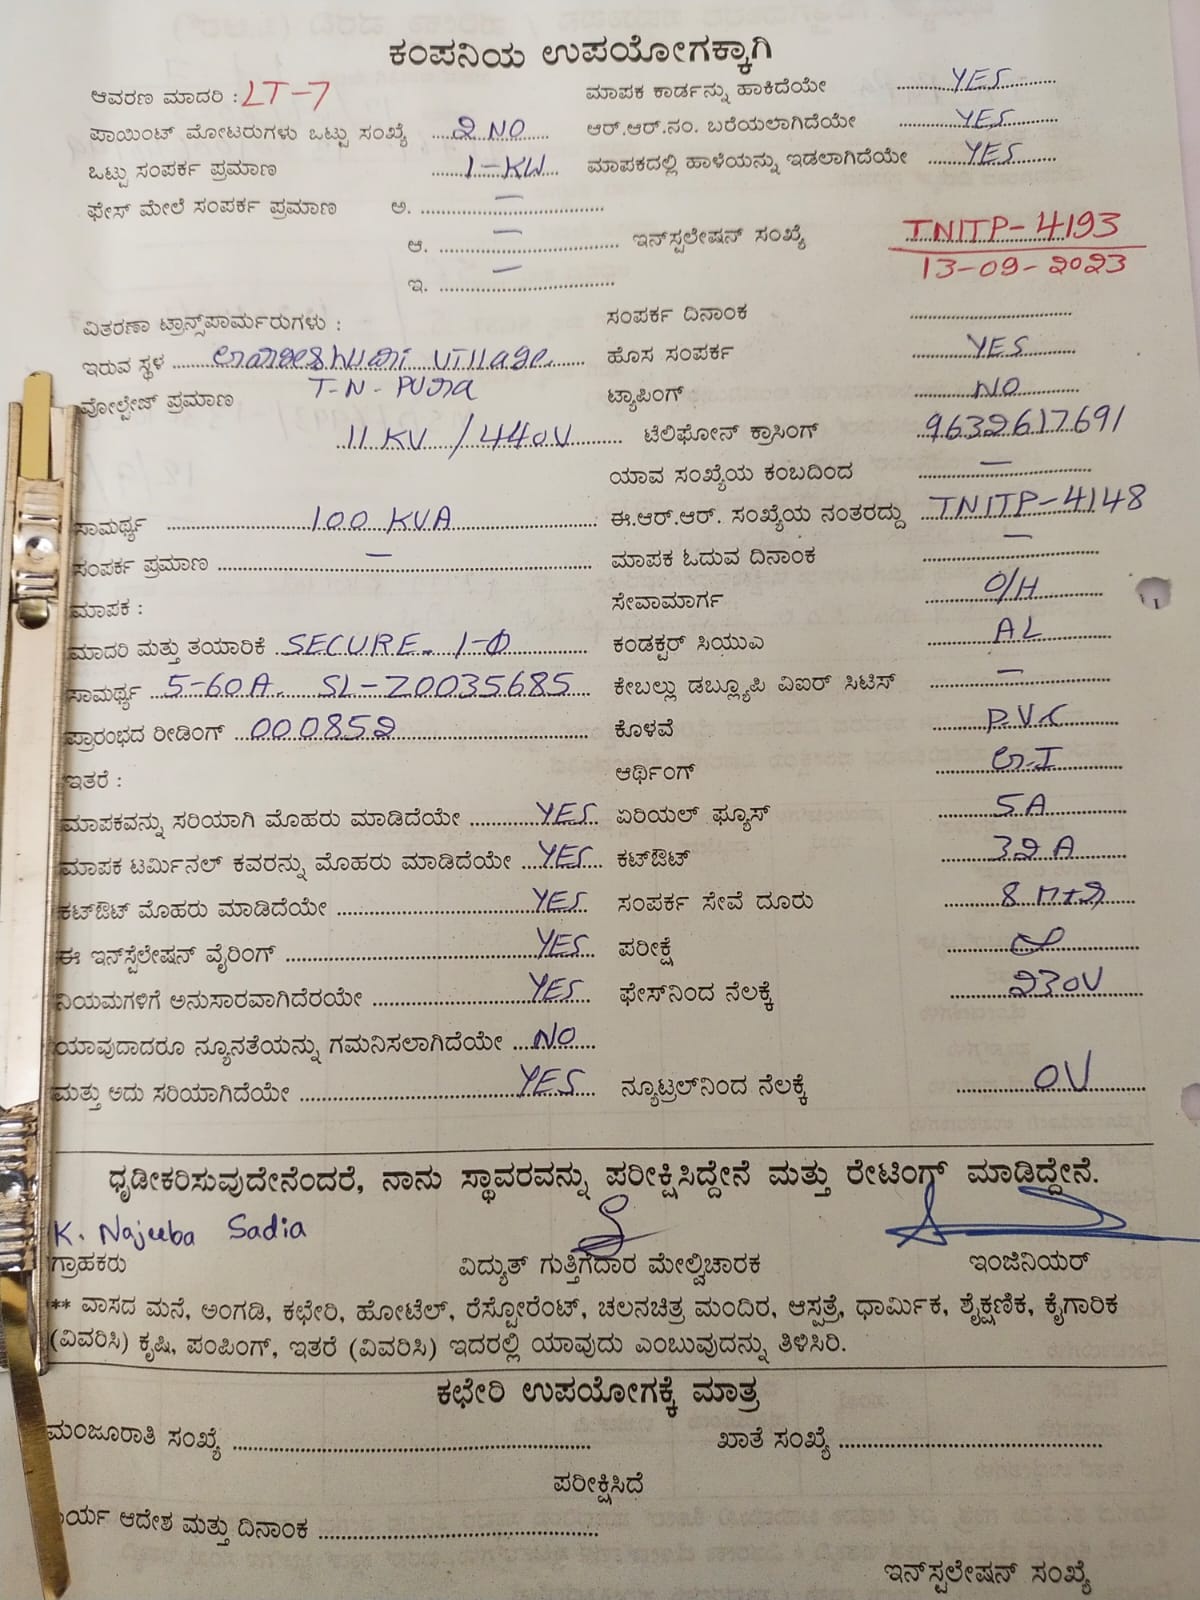 ಕಂಪನಿಯ ಉಪಯೋಗಕ್ಕಾಗಿ
ಆವರಣ ಮಾದರಿ : LT-7 ಮಾಪಕ ಕಾರ್ಡನ್ನು ಹಾಕಿದೆಯೇ YES
ಪಾಯಿಂಟ್ ಮೋಟರುಗಳು ಒಟ್ಟು ಸಂಖ್ಯೆ 2 NO ಆರ್.ಆರ್.ನಂ. ಬರೆಯಲಾಗಿದೆಯೇ YES
ಒಟ್ಟು ಸಂಪರ್ಕ ಪ್ರಮಾಣ 1-KW ಮಾಪಕದಲ್ಲಿ ಹಾಳೆಯನ್ನು ಇಡಲಾಗಿದೆಯೇ YES
ಫೇಸ್ ಮೇಲೆ ಸಂಪರ್ಕ ಪ್ರಮಾಣ ಅ. —
ಆ. — ಇನ್‌ಸ್ಟಲೇಷನ್ ಸಂಖ್ಯೆ TNITP-4193
ಇ. — 13-09-2023
ವಿತರಣಾ ಟ್ರಾನ್ಸ್‌ಪಾರ್ಮರುಗಳು : ಸಂಪರ್ಕ ದಿನಾಂಕ
ಇರುವ ಸ್ಥಳ village ಹೊಸ ಸಂಪರ್ಕ YES
ವೋಲ್ಟೇಜ್ ಪ್ರಮಾಣ T-N-Pura ಟ್ಯಾಪಿಂಗ್ NO
11 KV / 440V ಟೆಲಿಫೋನ್ ಕ್ರಾಸಿಂಗ್ 9632617691
ಯಾವ ಸಂಖ್ಯೆಯ ಕಂಬದಿಂದ —
ಸಾಮರ್ಥ್ಯ 100 KVA ಈ.ಆರ್.ಆರ್. ಸಂಖ್ಯೆಯ ನಂತರದ್ದು TNITP-4148
ಸಂಪರ್ಕ ಪ್ರಮಾಣ — ಮಾಪಕ ಓದುವ ದಿನಾಂಕ —
ಮಾಪಕ : ಸೇವಾಮಾರ್ಗ O/H
ಮಾದರಿ ಮತ್ತು ತಯಾರಿಕೆ SECURE. 1-Ø ಕಂಡಕ್ಟರ್ ಸಿಯುಎ AL
ಸಾಮರ್ಥ್ಯ 5-60A. SL-Z0035685 ಕೇಬಲ್ಲು ಡಬ್ಲ್ಯೂಪಿ ವಿಐಆರ್ ಸಿಟಿಸ್ —
ಪ್ರಾರಂಭದ ರೀಡಿಂಗ್ 000852 ಕೊಳವೆ P.V.C
ಇತರೆ : ಆರ್ಥಿಂಗ್
ಮಾಪಕವನ್ನು ಸರಿಯಾಗಿ ಮೊಹರು ಮಾಡಿದೆಯೇ YES ಏರಿಯಲ್ ಫ್ಯೂಸ್ 5A
ಮಾಪಕ ಟರ್ಮಿನಲ್ ಕವರನ್ನು ಮೊಹರು ಮಾಡಿದೆಯೇ YES ಕಟ್‌ಔಟ್ 32 A
ಕಟ್‌ಔಟ್ ಮೊಹರು ಮಾಡಿದೆಯೇ YES ಸಂಪರ್ಕ ಸೇವೆ ದೂರು 8
ಈ ಇನ್‌ಸ್ಟೆಲೇಷನ್ ವೈರಿಂಗ್ YES ಪರೀಕ್ಷೆ
ನಿಯಮಗಳಿಗೆ ಅನುಸಾರವಾಗಿದೆರಯೇ YES ಫೇಸ್‌ನಿಂದ ನೆಲಕ್ಕೆ 230V
ಯಾವುದಾದರೂ ನ್ಯೂನತೆಯನ್ನು ಗಮನಿಸಲಾಗಿದೆಯೇ NO
ಮತ್ತು ಅದು ಸರಿಯಾಗಿದೆಯೇ YES ನ್ಯೂಟ್ರಲ್‌ನಿಂದ ನೆಲಕ್ಕೆ 0V
ಧೃಡೀಕರಿಸುವುದೇನೆಂದರೆ, ನಾನು ಸ್ಥಾವರವನ್ನು ಪರೀಕ್ಷಿಸಿದ್ದೇನೆ ಮತ್ತು ರೇಟಿಂಗ್ ಮಾಡಿದ್ದೇನೆ.
K. Najeeba Sadia
ಗ್ರಾಹಕರು ವಿದ್ಯುತ್ ಗುತ್ತಿಗೆದಾರ ಮೇಲ್ವಿಚಾರಕ ಇಂಜಿನಿಯರ್
** ವಾಸದ ಮನೆ, ಅಂಗಡಿ, ಕಛೇರಿ, ಹೋಟೆಲ್, ರೆಸ್ಟೋರೆಂಟ್, ಚಲನಚಿತ್ರ ಮಂದಿರ, ಆಸ್ಪತ್ರೆ, ಧಾರ್ಮಿಕ, ಶೈಕ್ಷಣಿಕ, ಕೈಗಾರಿಕ
(ವಿವರಿಸಿ) ಕೃಷಿ, ಪಂಪಿಂಗ್, ಇತರೆ (ವಿವರಿಸಿ) ಇದರಲ್ಲಿ ಯಾವುದು ಎಂಬುವುದನ್ನು ತಿಳಿಸಿರಿ.
ಕಛೇರಿ ಉಪಯೋಗಕ್ಕೆ ಮಾತ್ರ
ಮಂಜೂರಾತಿ ಸಂಖ್ಯೆ ಖಾತೆ ಸಂಖ್ಯೆ
ಪರೀಕ್ಷಿಸಿದೆ
ರ್ಯ ಆದೇಶ ಮತ್ತು ದಿನಾಂಕ
ಇನ್‌ಸ್ಟಲೇಷನ್ ಸಂಖ್ಯೆ